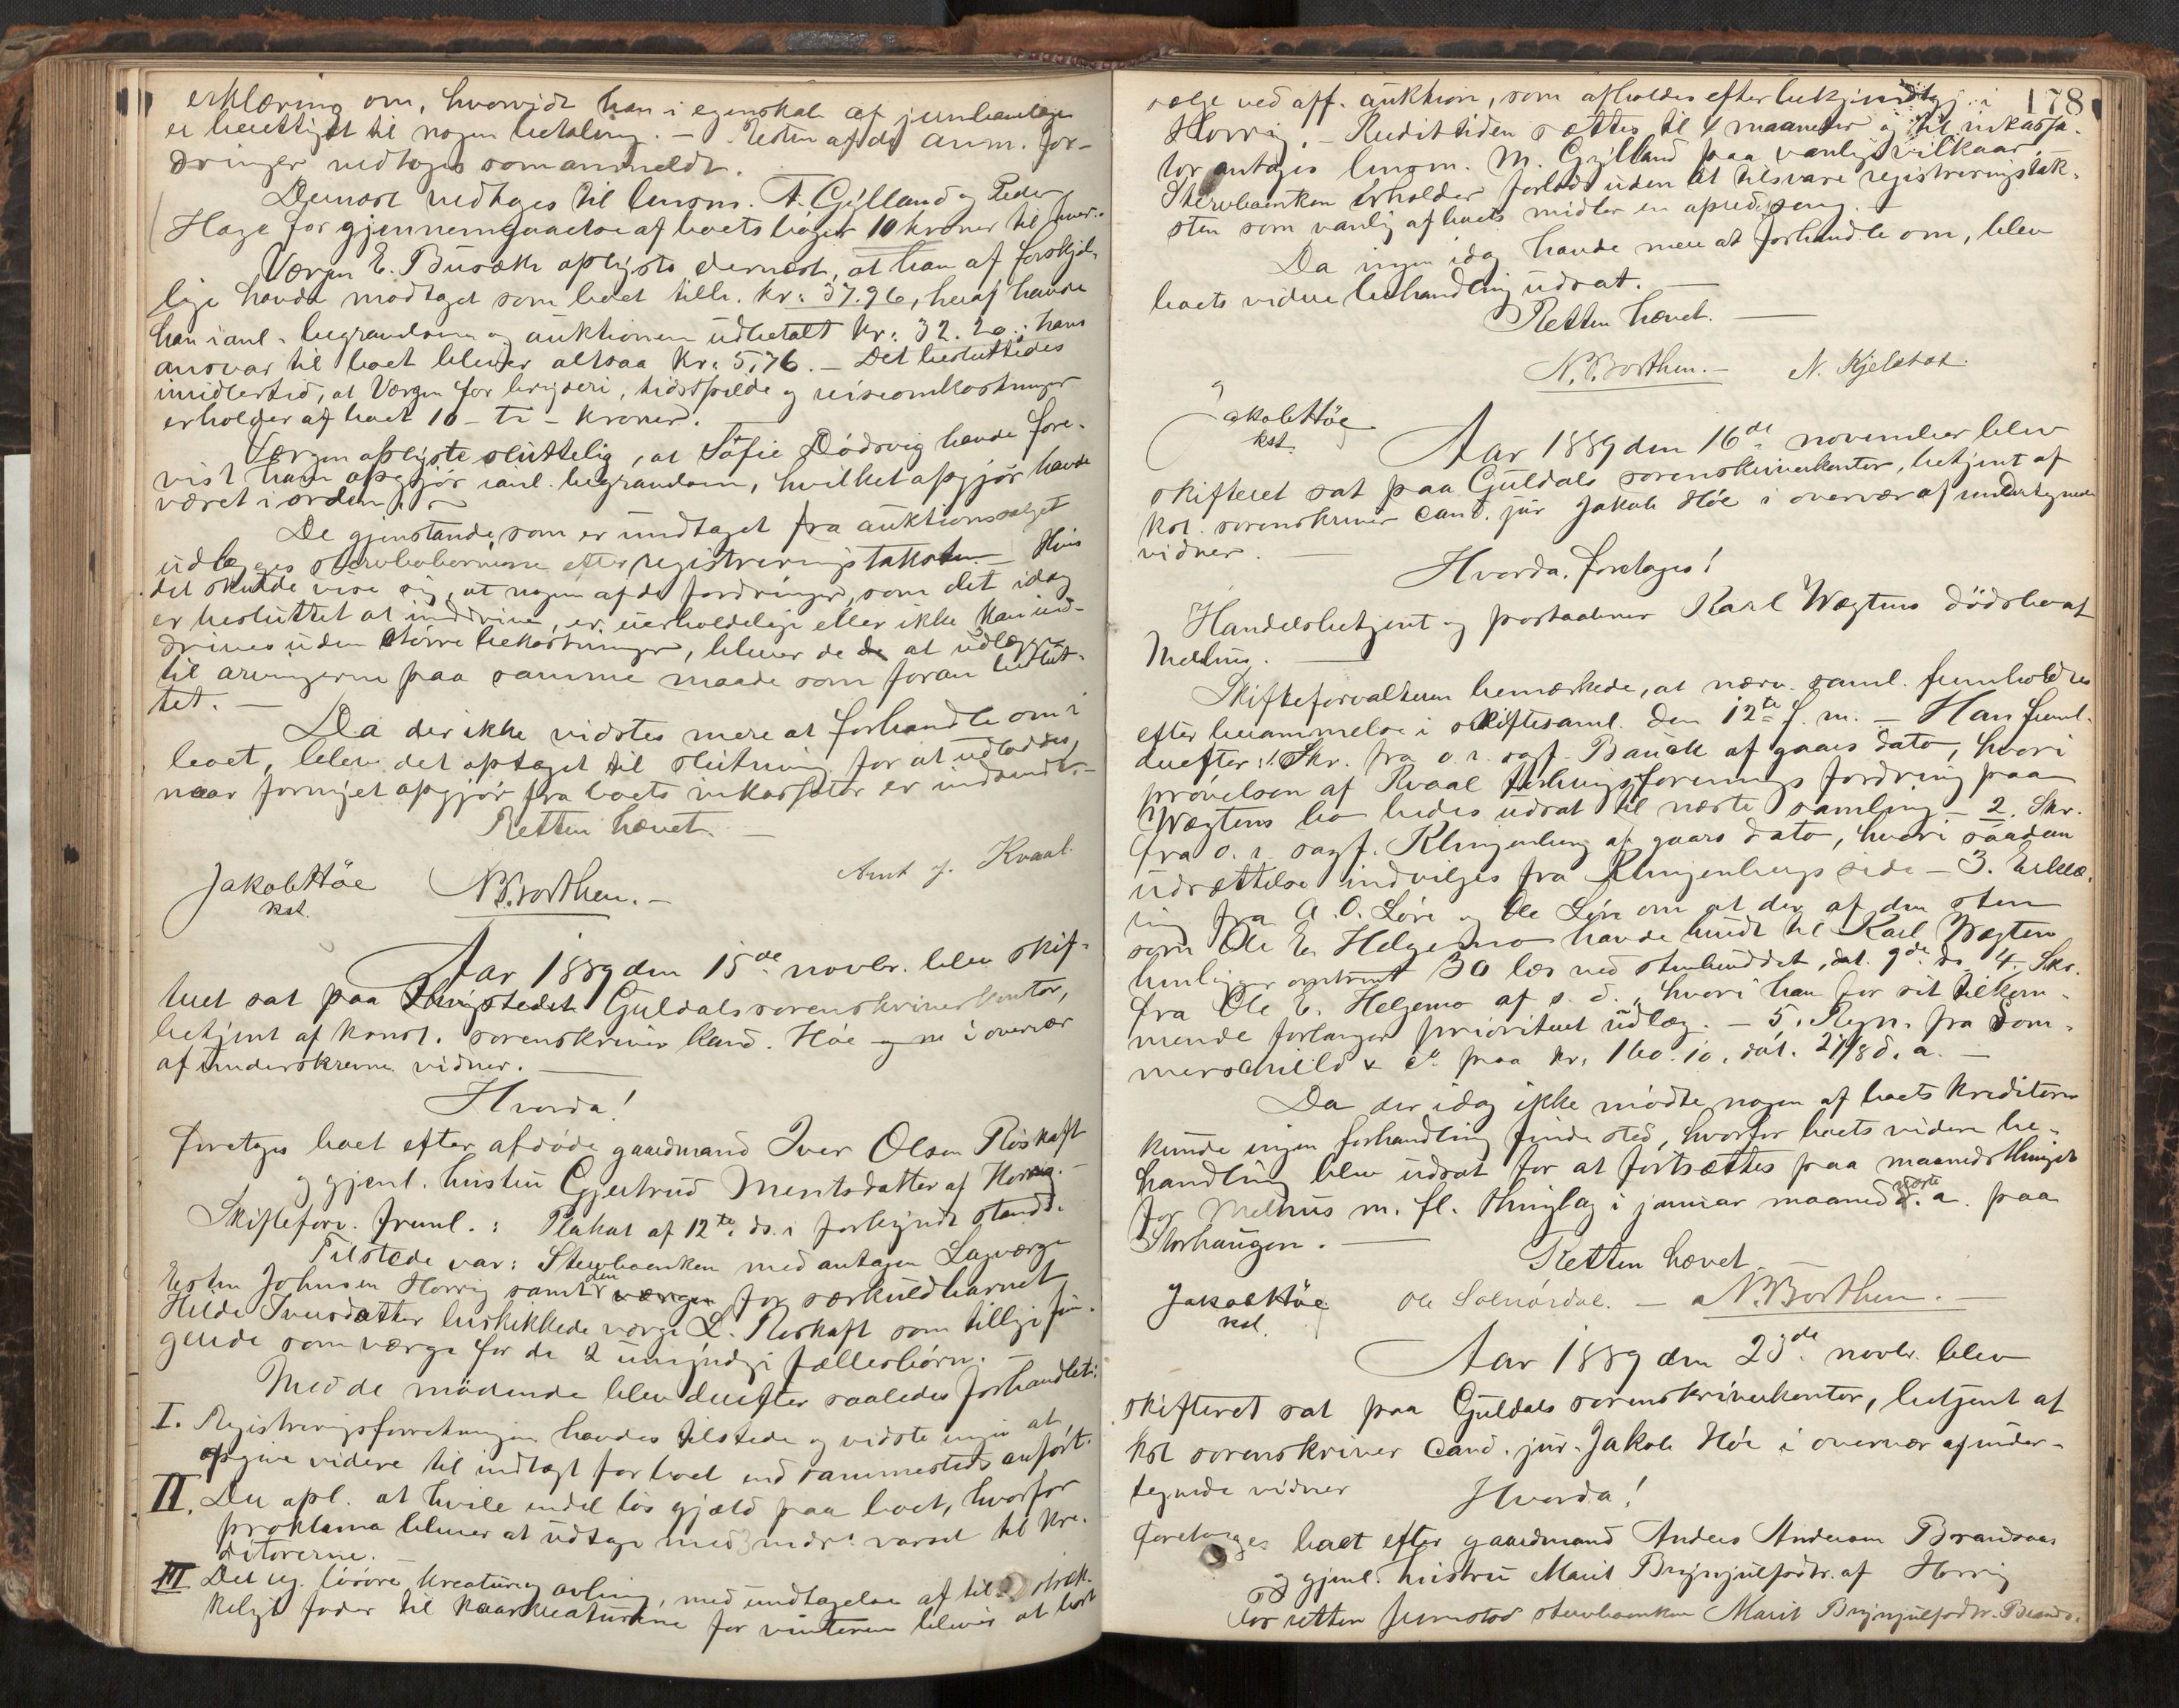 erklæring om, hvorvidt han i egenskab af
er berettiget til nogen betaling. – Resten af de anm. for-
dringer vedtoges som anmeldt.
Dernæst vedtages til lensm. A. Gylland og Peder
Hage for gjennemgaaelse af boets bøger 10 kroner til hver.
Værgen E. Busæk oplyste dernæst, at han af forskjel-
lige havde modtaget som boet tilh. kr: 37.96, heraf havde
han i anl. begravelsen og auktionen udbetalt kr: 32.20; hans
ansvar til boet bliver altsaa kr: 5,76. – Det besluttedes
imidlertid, at Værgen for bryderi, tidsspilde og reiseomkostninger
erholder af boet 10 – ti – kroner.
Værgen oplyste sluttelig, at Sofie Dødsvig havde fore-
vist ham opgjør i anl. begravelsen, hvilket opgjør havde
været i orden.
De gjenstande, som er undtaget fra auktionssalget
udlægges efter registreringstaksten. – Hvis
det skulde vise sig, at nogen af de fordringer, som det idag
er besluttet at inddrive, er uerholdelige eller ikke kan ind-
drives uden større bekostninger, bliver de at udlægge
til arvingerne paa samme maade som foran beslut-
tet. –
Da der ikke vidstes mere at forhandle om i
boet, blev det optaget til slutning for at udloddes,
naar fornyet opgjør fra boets inkassator er indsendt. –
Retten hævet. –
Jakob Høe
kst.
N. Borthen. –
Arnt J. Kvaal.
Aar 1889 den 15de novbr. blev skif-
teret sat paa Thingstedet Guldals sorenskriverkontor,
betjent af konst. sorenskriver kand. Høe i overvær
af underskrevne vidner.
Hvorda!
foretoges boet efter afdøde gaardmand Iver Olsen Røskaft
og gjenl. hustru Gjertrud Mentsdatter af Horrig. –
Skifteforv. freml.: Plakat af 12te ds. i forkyndt stand.
Tilstede var: Stervboenken med antagen Lagværge
Johnsen Horrig samt den værgen for særkuldbarnet
Hilde Iversdatter beskikkede værge L. Røskaft som tillige fun-
gerede som værge for de 2 umyndige fællesbørn. –
Med de mødende blev derefter saaledes forhandlet:
I. Registreringsforretningen havdes tilstede og vidste ingen at
opgive videre til indtægt for boet end sammesteds anført.
II. Der opl. at hvile endel løs gjæld paa boet, hvorfor
proklama bliver at udtage med 3 mdrs varsel til kre-
ditorerne.
III Det reg. løsøre, kreaturer og avling, med undtagelse af tilstræk-
keligt foder til kaarkreaturerne for vinteren bliver at bort
178
sælge ved off. auktion, som afholdes efter bekjendtgj. i
Horrig. – Kredittiden sættes til maaneder og til inkassa-
tor antages lensm. M. Gylland paa vanlige vilkaar. –
Stervboenken erholder forlods uden at tilsvare registreringstak-
sten som vanlig af boets midler en opredt seng. –
Da ingen idag havde mere at forhandle om, blev
boets videre behandling udsat. –
Retten hævet. –
N. Borthen. –
N. Kjelstad.
Jakob Høe
kst.
Aar 1889 den 16de november blev
skifteret sat paa Guldals sorenskriverkontor, betjent af
kst. sorenskriver cand. jur Jakob Høe i overvær af undertegnede
vidner. –
Hvorda. foretoges!
Handelsbetjent og postaabner Karl Wægtens dødsbo af
Melhus. –
Skifteforvalteren bemærkede, at nærv. saml. fremholdtes
efter berammelse i skiftesaml. den 12te f. m. – Han freml.
derefter: 1. Skr. fra o.r. sagf. Bauck af gaars dato, hvori
prøvelsen af Kvaal forenings fordring paa
Wægtens bo bedes udsat til næste samling – 2. Skr.
fra o. r. sagf. Klingenberg af gaars dato, hvori saadan
udsættelse indvilges fra Klingenbergs side – 3. Erklæ-
ring fra A. O. Løre og Ole Løre om at der af den sten
som Ole E. Helgemo havde brudt til Karl Wægten
henligger omtrent 30 læs ved stenbruddet, dat. 9de ds. 4, Skr.
fra Ole E. Helgemo af s. d., hvori han for sit tilkom-
mende forlanger prioriteret udlæg. – 5. Regn. fra Som-
merschield & Co paa kr. 160.10, dat. 21/8 d. a. –
Da der idag ikke mødte nogen af boets kreditorer
kunde ingen forhandling finde sted, hvorfor boets videre be-
handling blev udsat for at fortsættes paa maanedsthinget
for Melhus m. fl. thinglag i januar maaned næste a. paa
Storhaugen. –
Retten hævet
Jakob Høe
kst.
Ole Solnørdal. –
N. Borthen. –
Aar 1889 den 23de novbr. blev
skifteret sat paa Guldals sorenskriverkontor, betjent af
kst sorenskriver cand. jur. Jakob Høe i overvær af under-
tegnede vidner
Hvorda!
foretoges boet efter gaardmand Anders Andersen Brandsaas
og gjenl. hustru Marit Brynjulfsdtr. af Horrig
For retten fremstod stervboenken Marit Brynjulfsdtr. Brands-